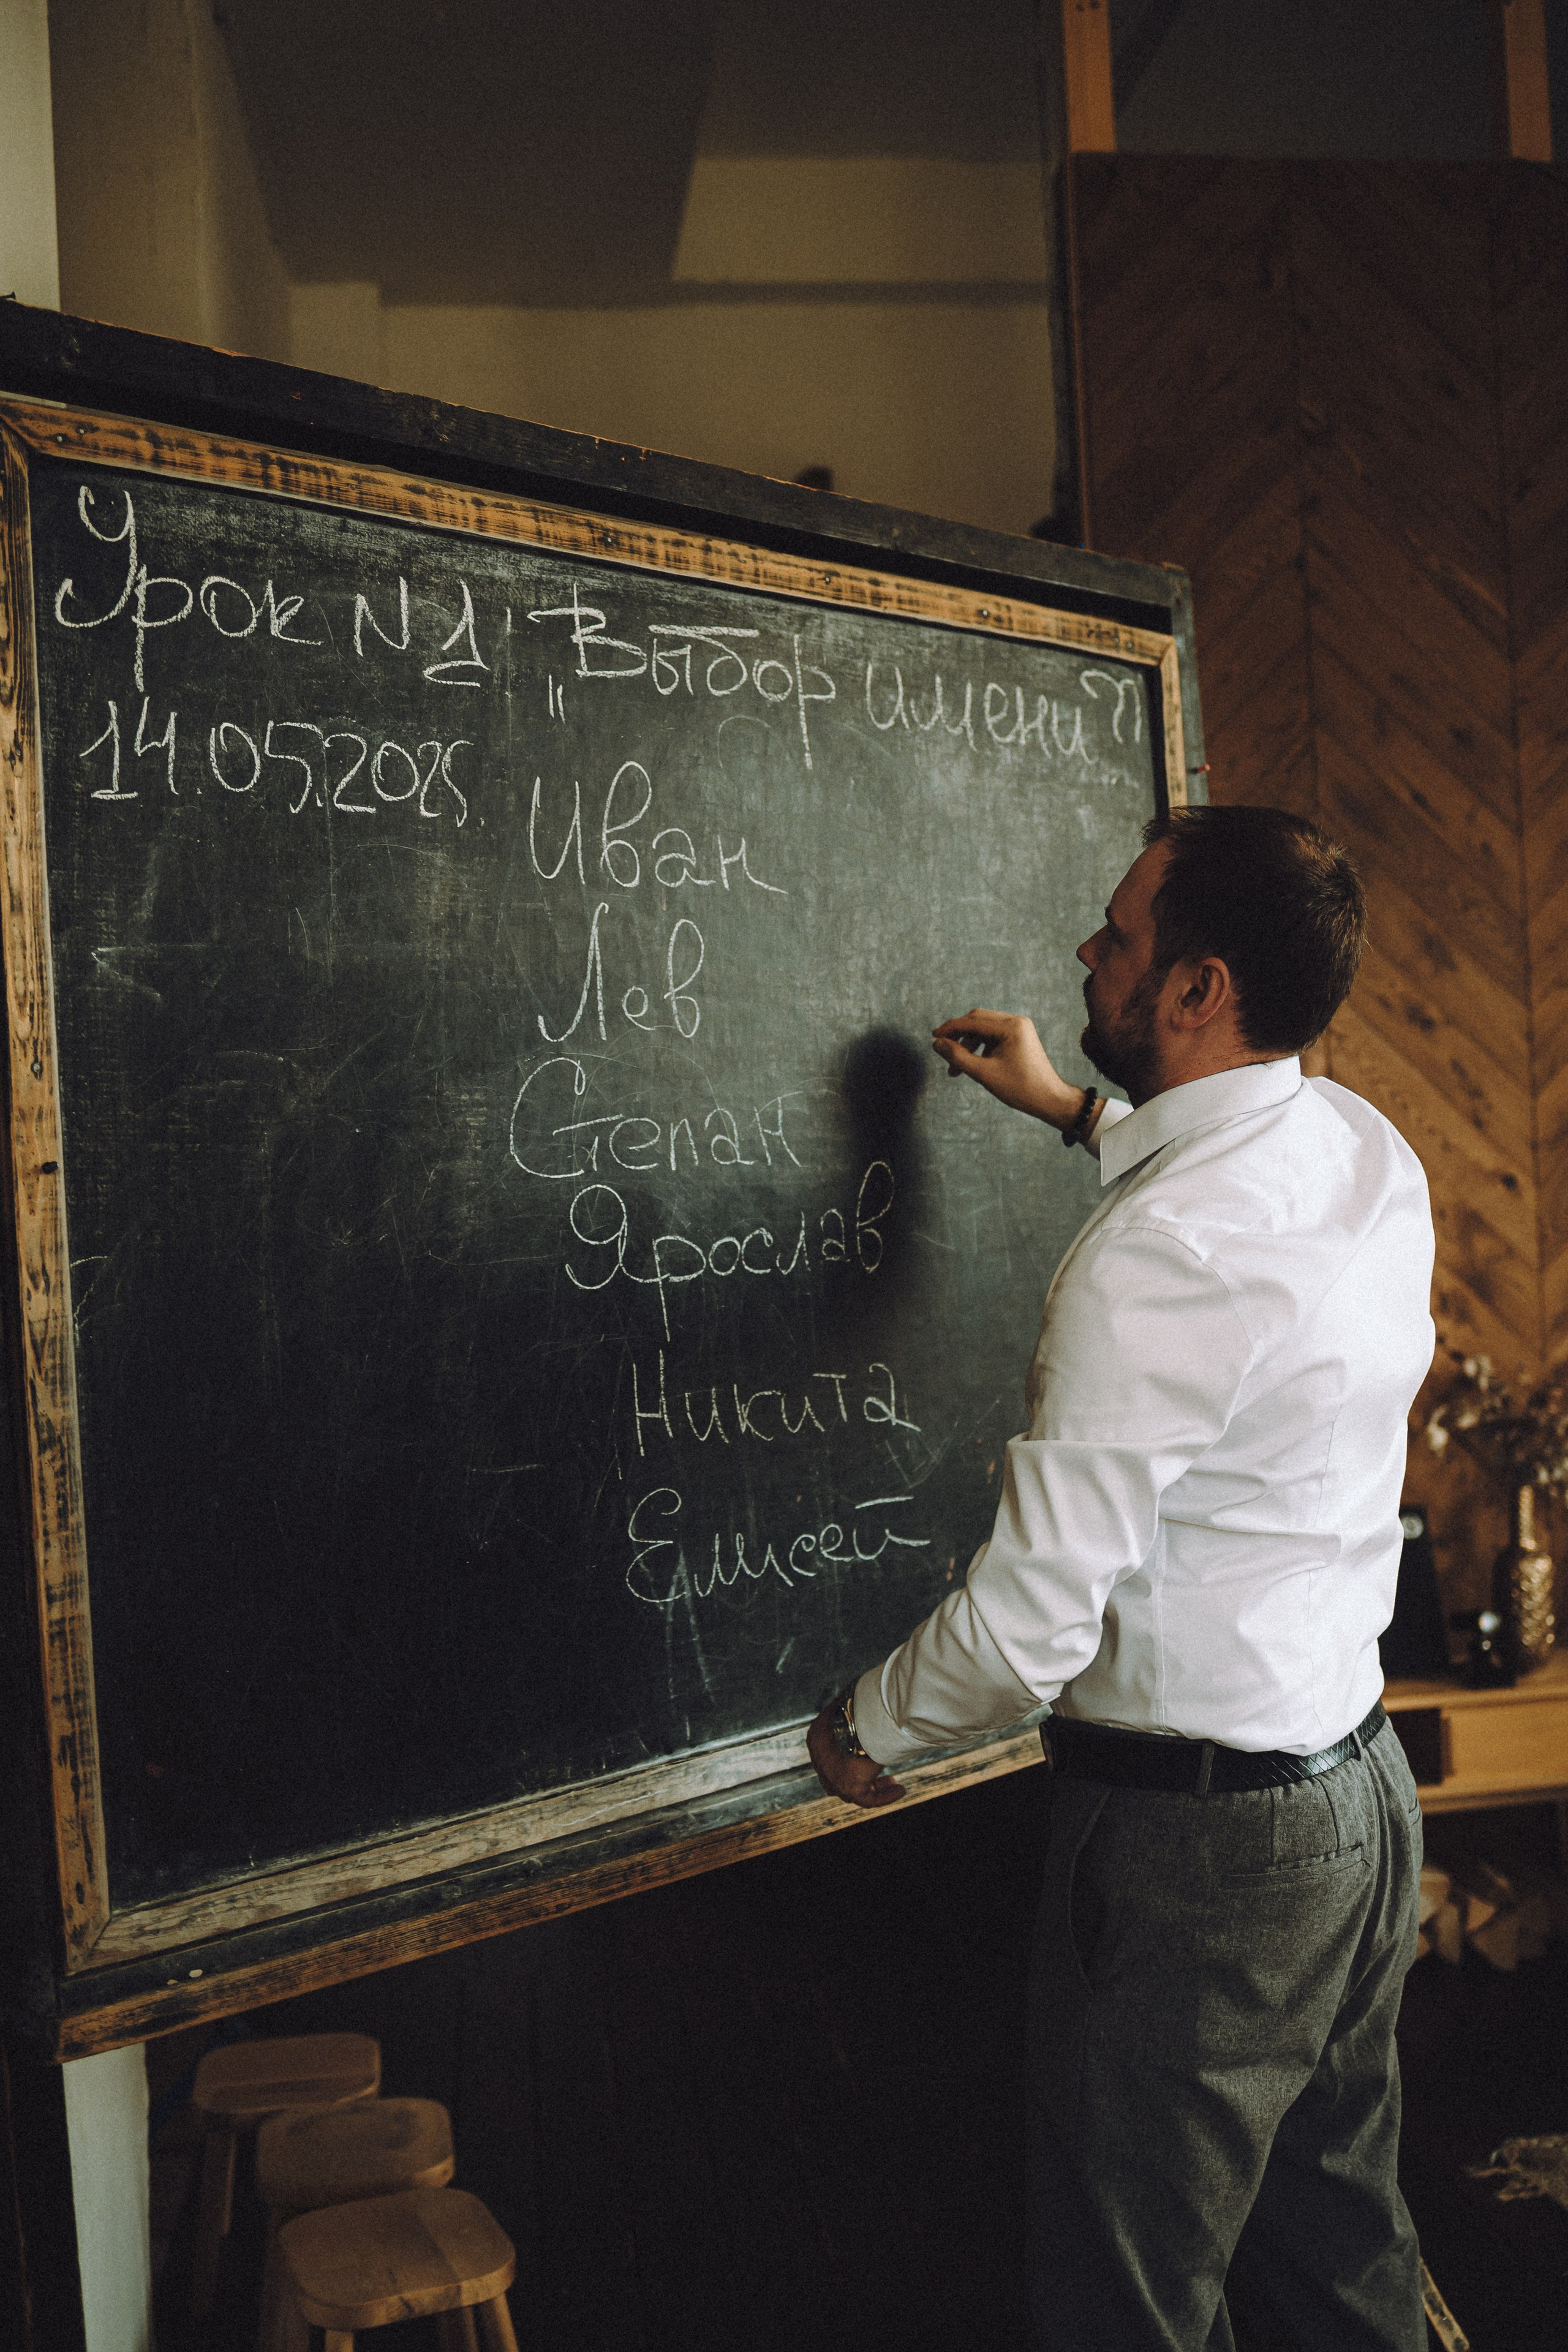 Урок N1 „Выбор имени"
14.05.2025.
Иван
Лев
Степан
Ярослав
Никита
Елисей